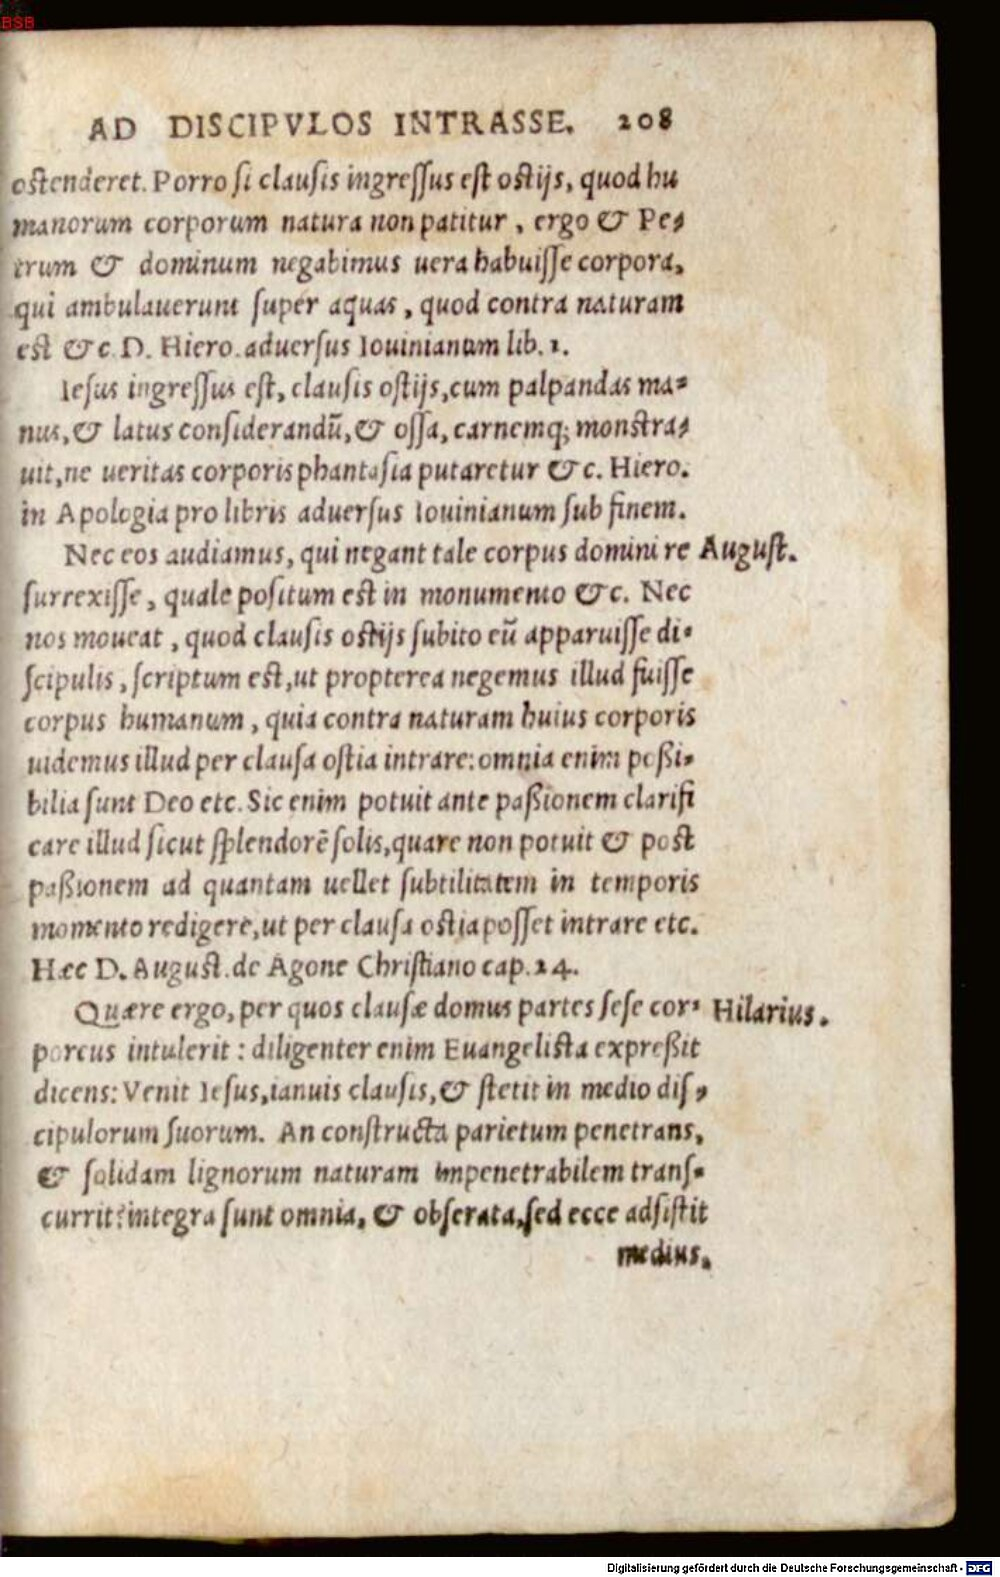 BSB
AD DISCIPVLOS INTRASSE. 208
ostenderet. Porro si clausis ingressus est ostijs, quod hu
manorum corporum natura non patitur, ergo & Pe-
trum & dominum negabimus uera habuisse corpora,
qui ambulauerunt super aquas, quod contra naturam
est &c. D. Hiero. aduersus Iouinianum lib. 1.
Iesus ingressus est, clausis ostijs, cum palpandas ma-
nus, & latus considerandū, & ossa, carnemq; monstra-
uit, ne ueritas corporis phantasia putaretur &c. Hiero.
in Apologia pro libris aduersus Iouinianum sub finem.
Nec eos audiamus, qui negant tale corpus domini re August.
surrexisse, quale positum est in monumento &c. Nec
nos moueat, quod clausis ostijs subito eū apparuisse di-
scipulis, scriptum est, ut propterea negemus illud fuisse
corpus humanum, quia contra naturam huius corporis
uidemus illud per clausa ostia intrare: omnia enim poßi-
bilia sunt Deo etc. Sic enim potuit ante paßionem clarifi
care illud sicut splendorē solis, quare non potuit & post
paßionem ad quantam uellet subtilitatem in temporis
momento redigere, ut per clausa ostia posset intrare etc.
Hæc D. August. de Agone Christiano cap. 24.
Quære ergo, per quos clausæ domus partes sese cor- Hilarius.
poreus intulerit: diligenter enim Euangelista expreßit
dicens: Venit Iesus, ianuis clausis, & stetit in medio dis-
cipulorum suorum. An constructa parietum penetrans,
& solidam lignorum naturam impenetrabilem trans-
currit? integra sunt omnia, & obserata, sed ecce adsistit
medius.
Digitalisierung gefördert durch die Deutsche Forschungsgemeinschaft - DFG